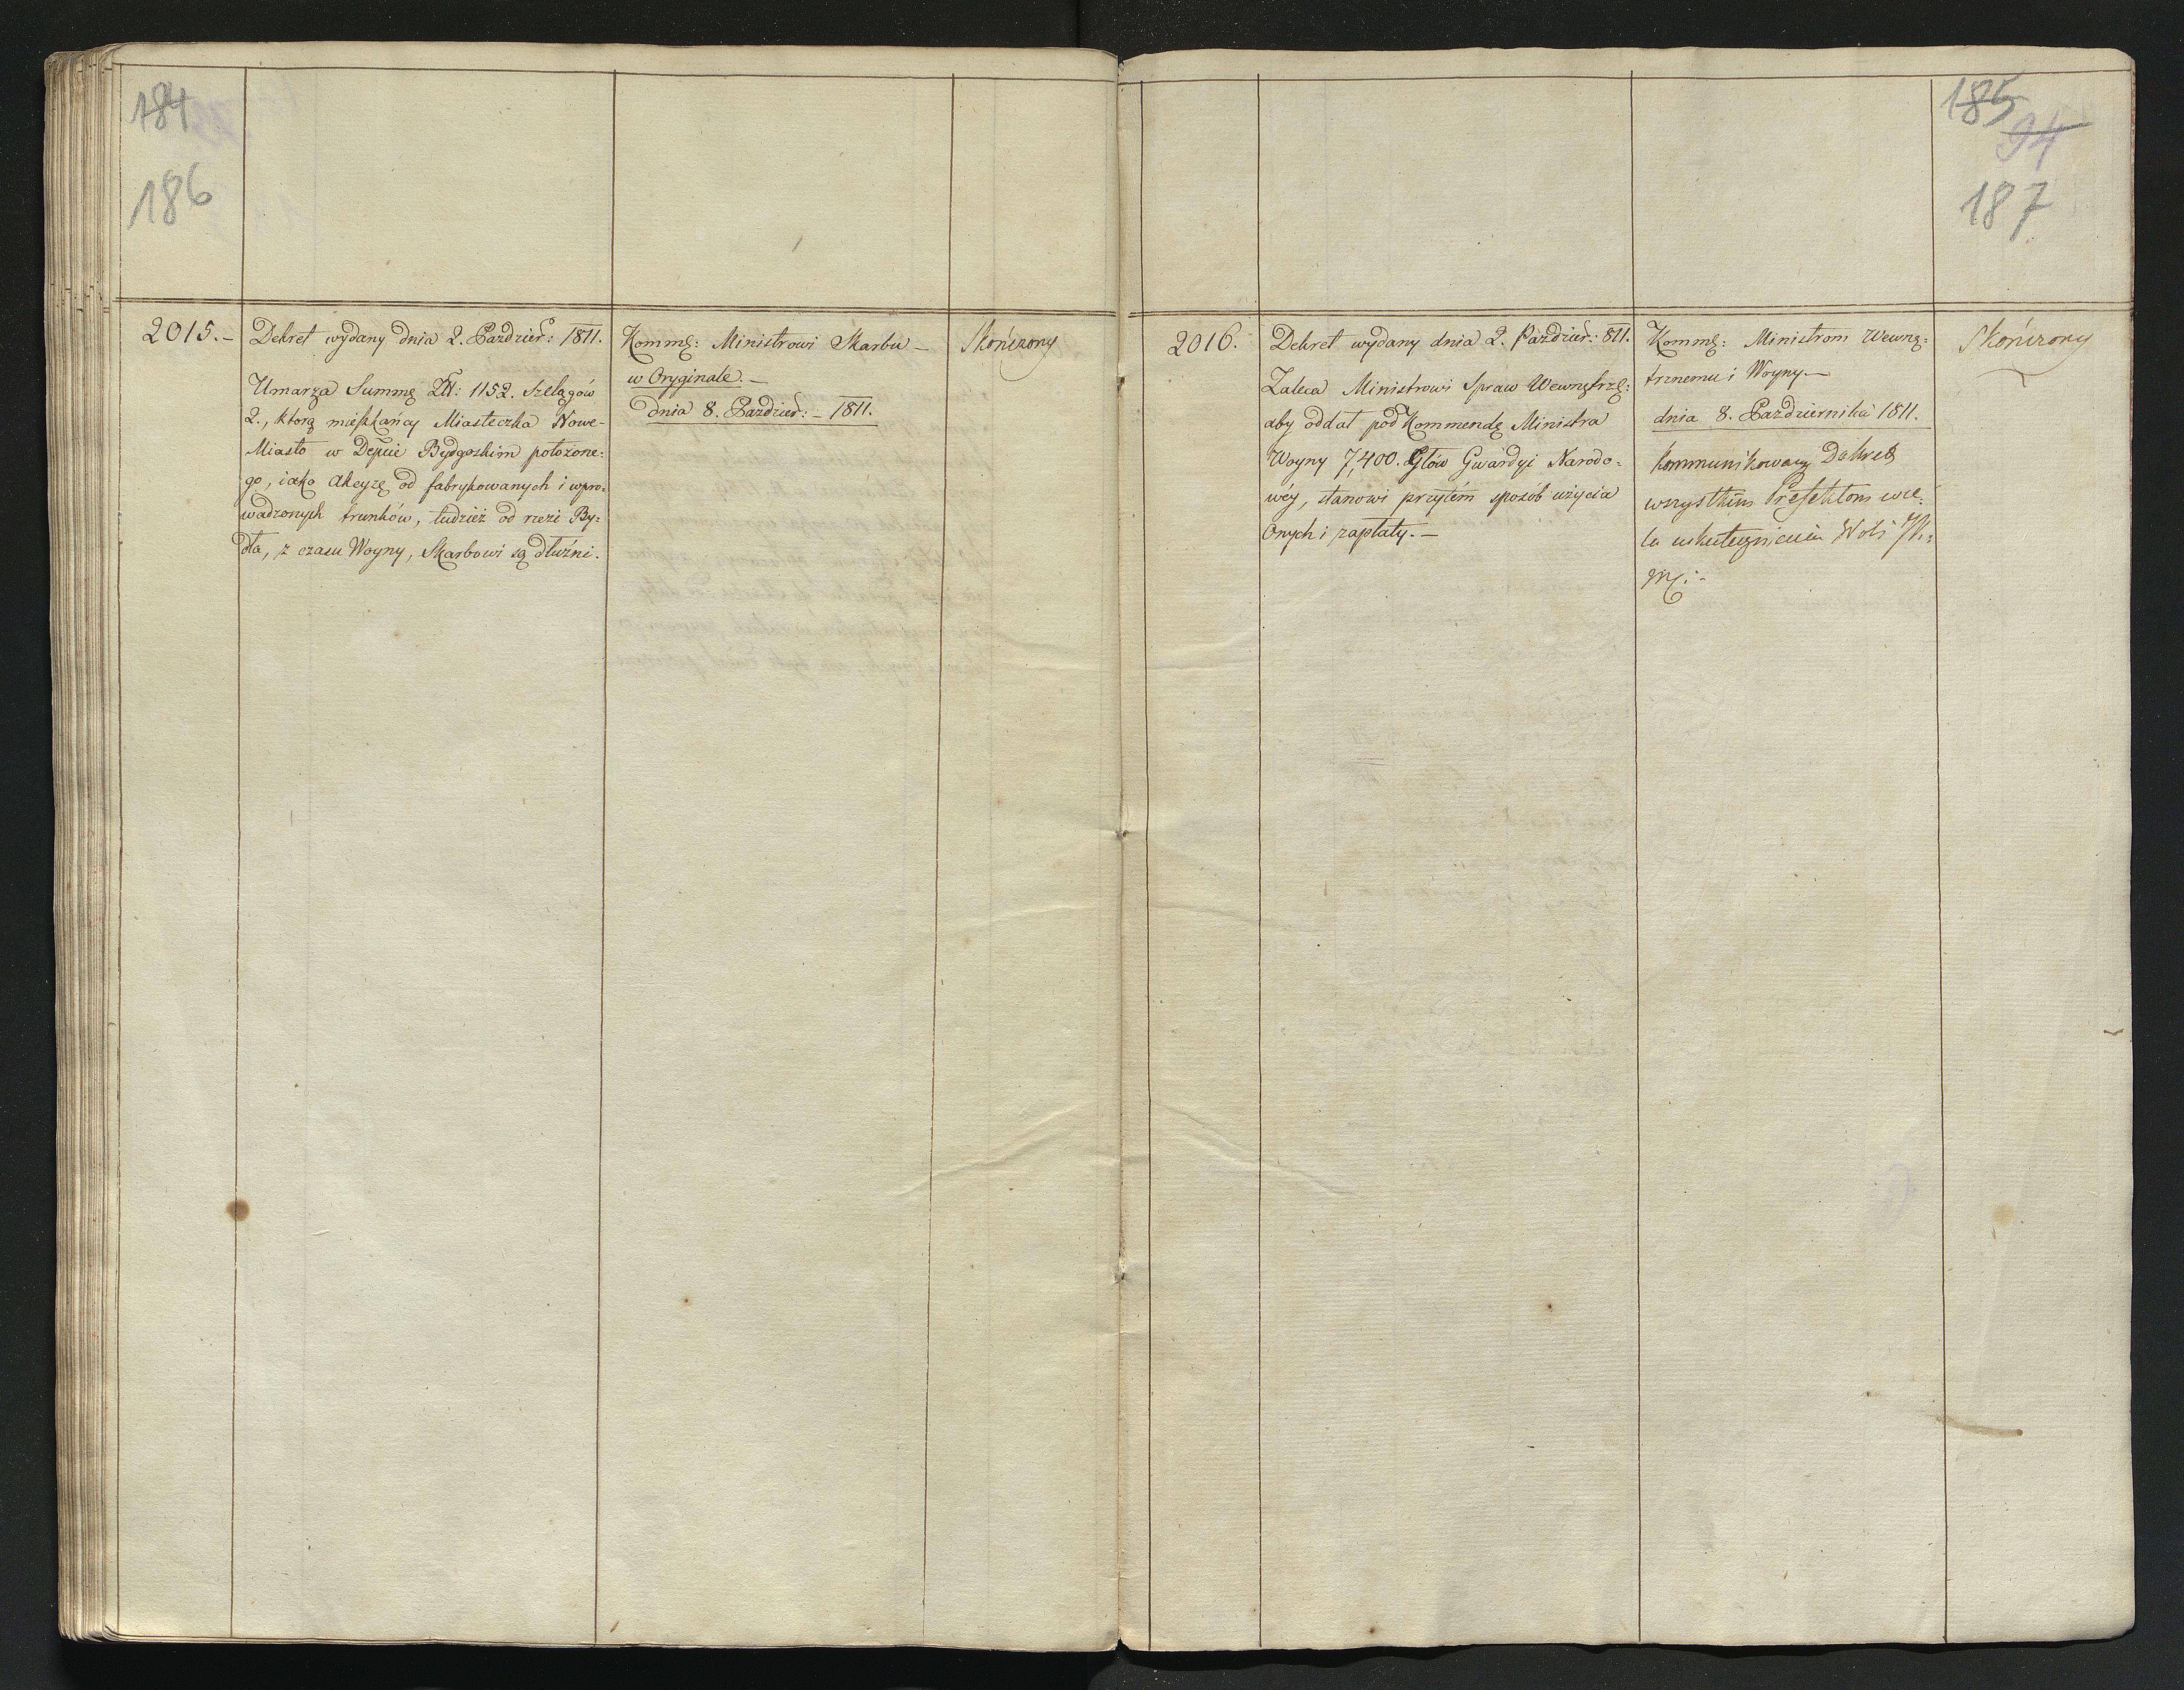 184
186
2015.-
Dekret wydany dnia 2. Pazdzier: 1811.
Umarza Summę Zł: 1152. Szelągów
2., ktorą mieszkańcy Miasteczka Nowe-
Miasto w Depcie Bydgoskim położone:
go, iako Akcyzę od fabrykowanych i wpro:
wadzonych trunków, tudzież od rzezi By:
dła, z czasu Woyny, Skarbowi są dłużni.
Kommę: Ministrowi Skarbu -
w Oryginale. -
dnia 8. Pazdzier: - 1811.
Skończony
185
94
187
2016.
Dekret wydany dnia 2. Pazdzier: 811.
Zaleca Ministrowi Spraw Wewnętrzę:
aby oddał pod Kommendę Ministra
Woyny 7,400. Głów Gwardyi Narodo-
wéy, stanowi przytém sposób użycia
Onych i zapłaty. -
Kommę: Ministrom Wewnę:
trznemu i Woyny. -
dnia 8. Pazdziernika 1811.
kommunikowany Dekret
wszystkim Prefektom wce:
lu uskutecznienia Woli JK:
Mci -
Skończony